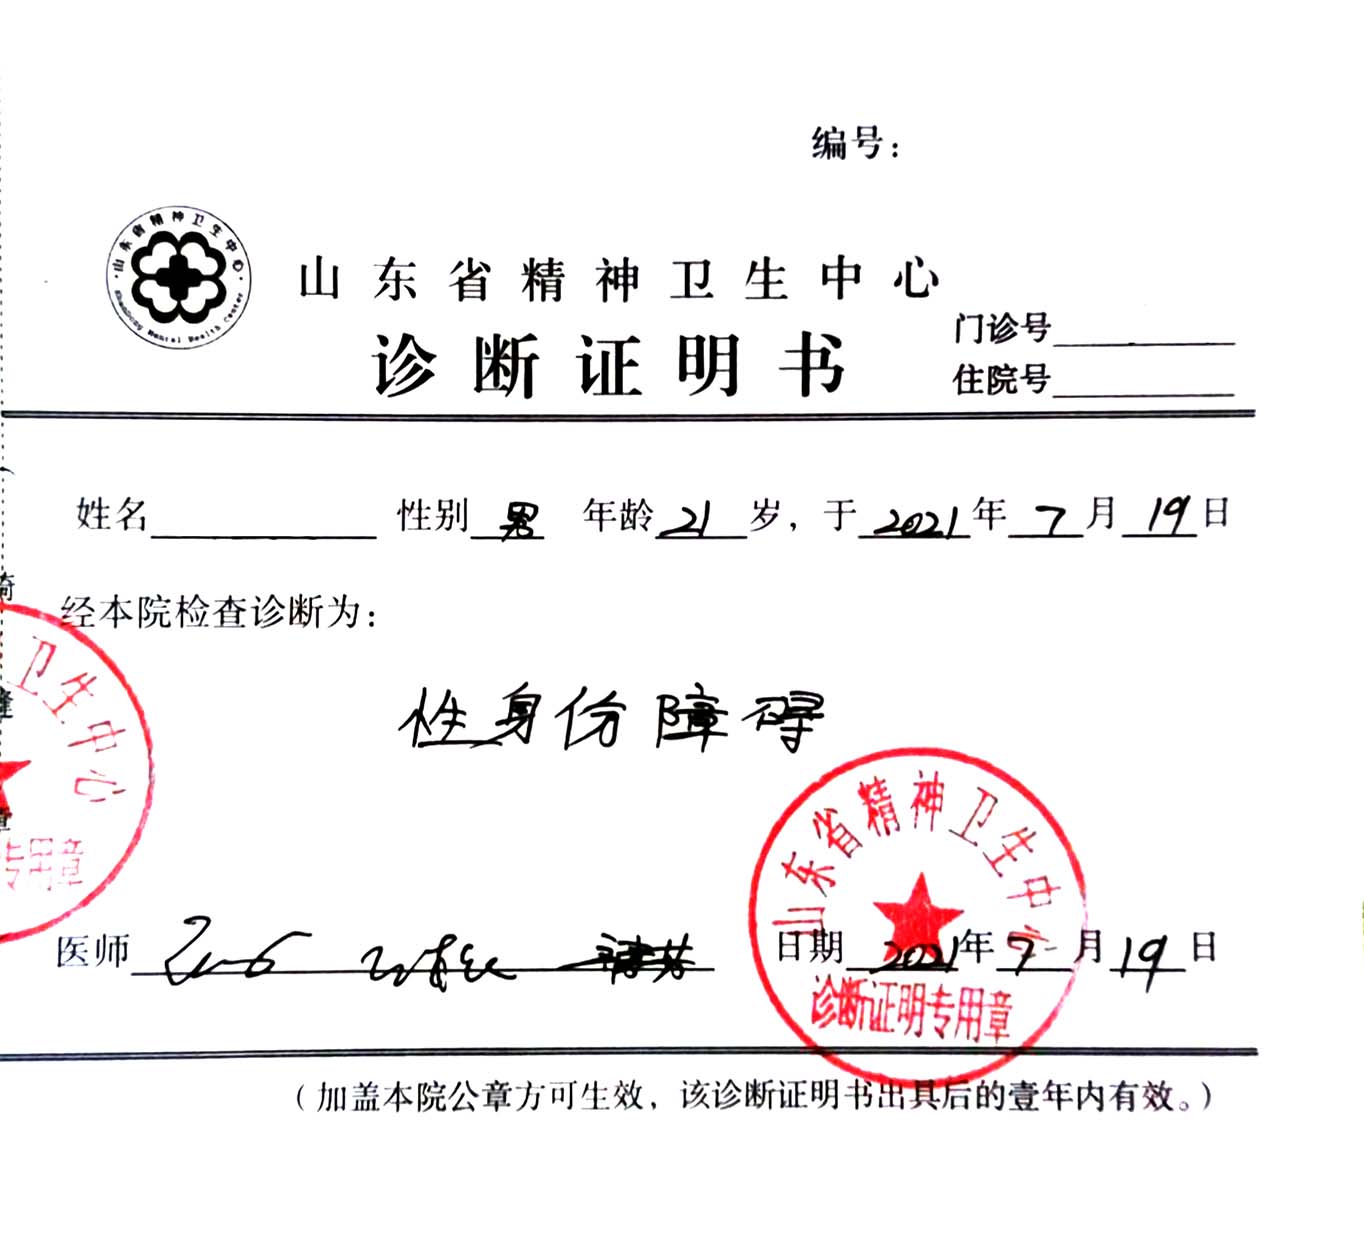 编号：
山东省精神卫生中心
Shandong Mental Health Center
山东省精神卫生中心
诊断证明书
门诊号
住院号
姓名 性别 男 年龄 21 岁，于 2021 年 7 月 19 日
经本院检查诊断为：
卫生中心
专用章
性身份障碍
山东省精神卫生中心
诊断证明专用章
医师 日期 2021 年 7 月 19 日
（加盖本院公章方可生效，该诊断证明书出具后的壹年内有效。）